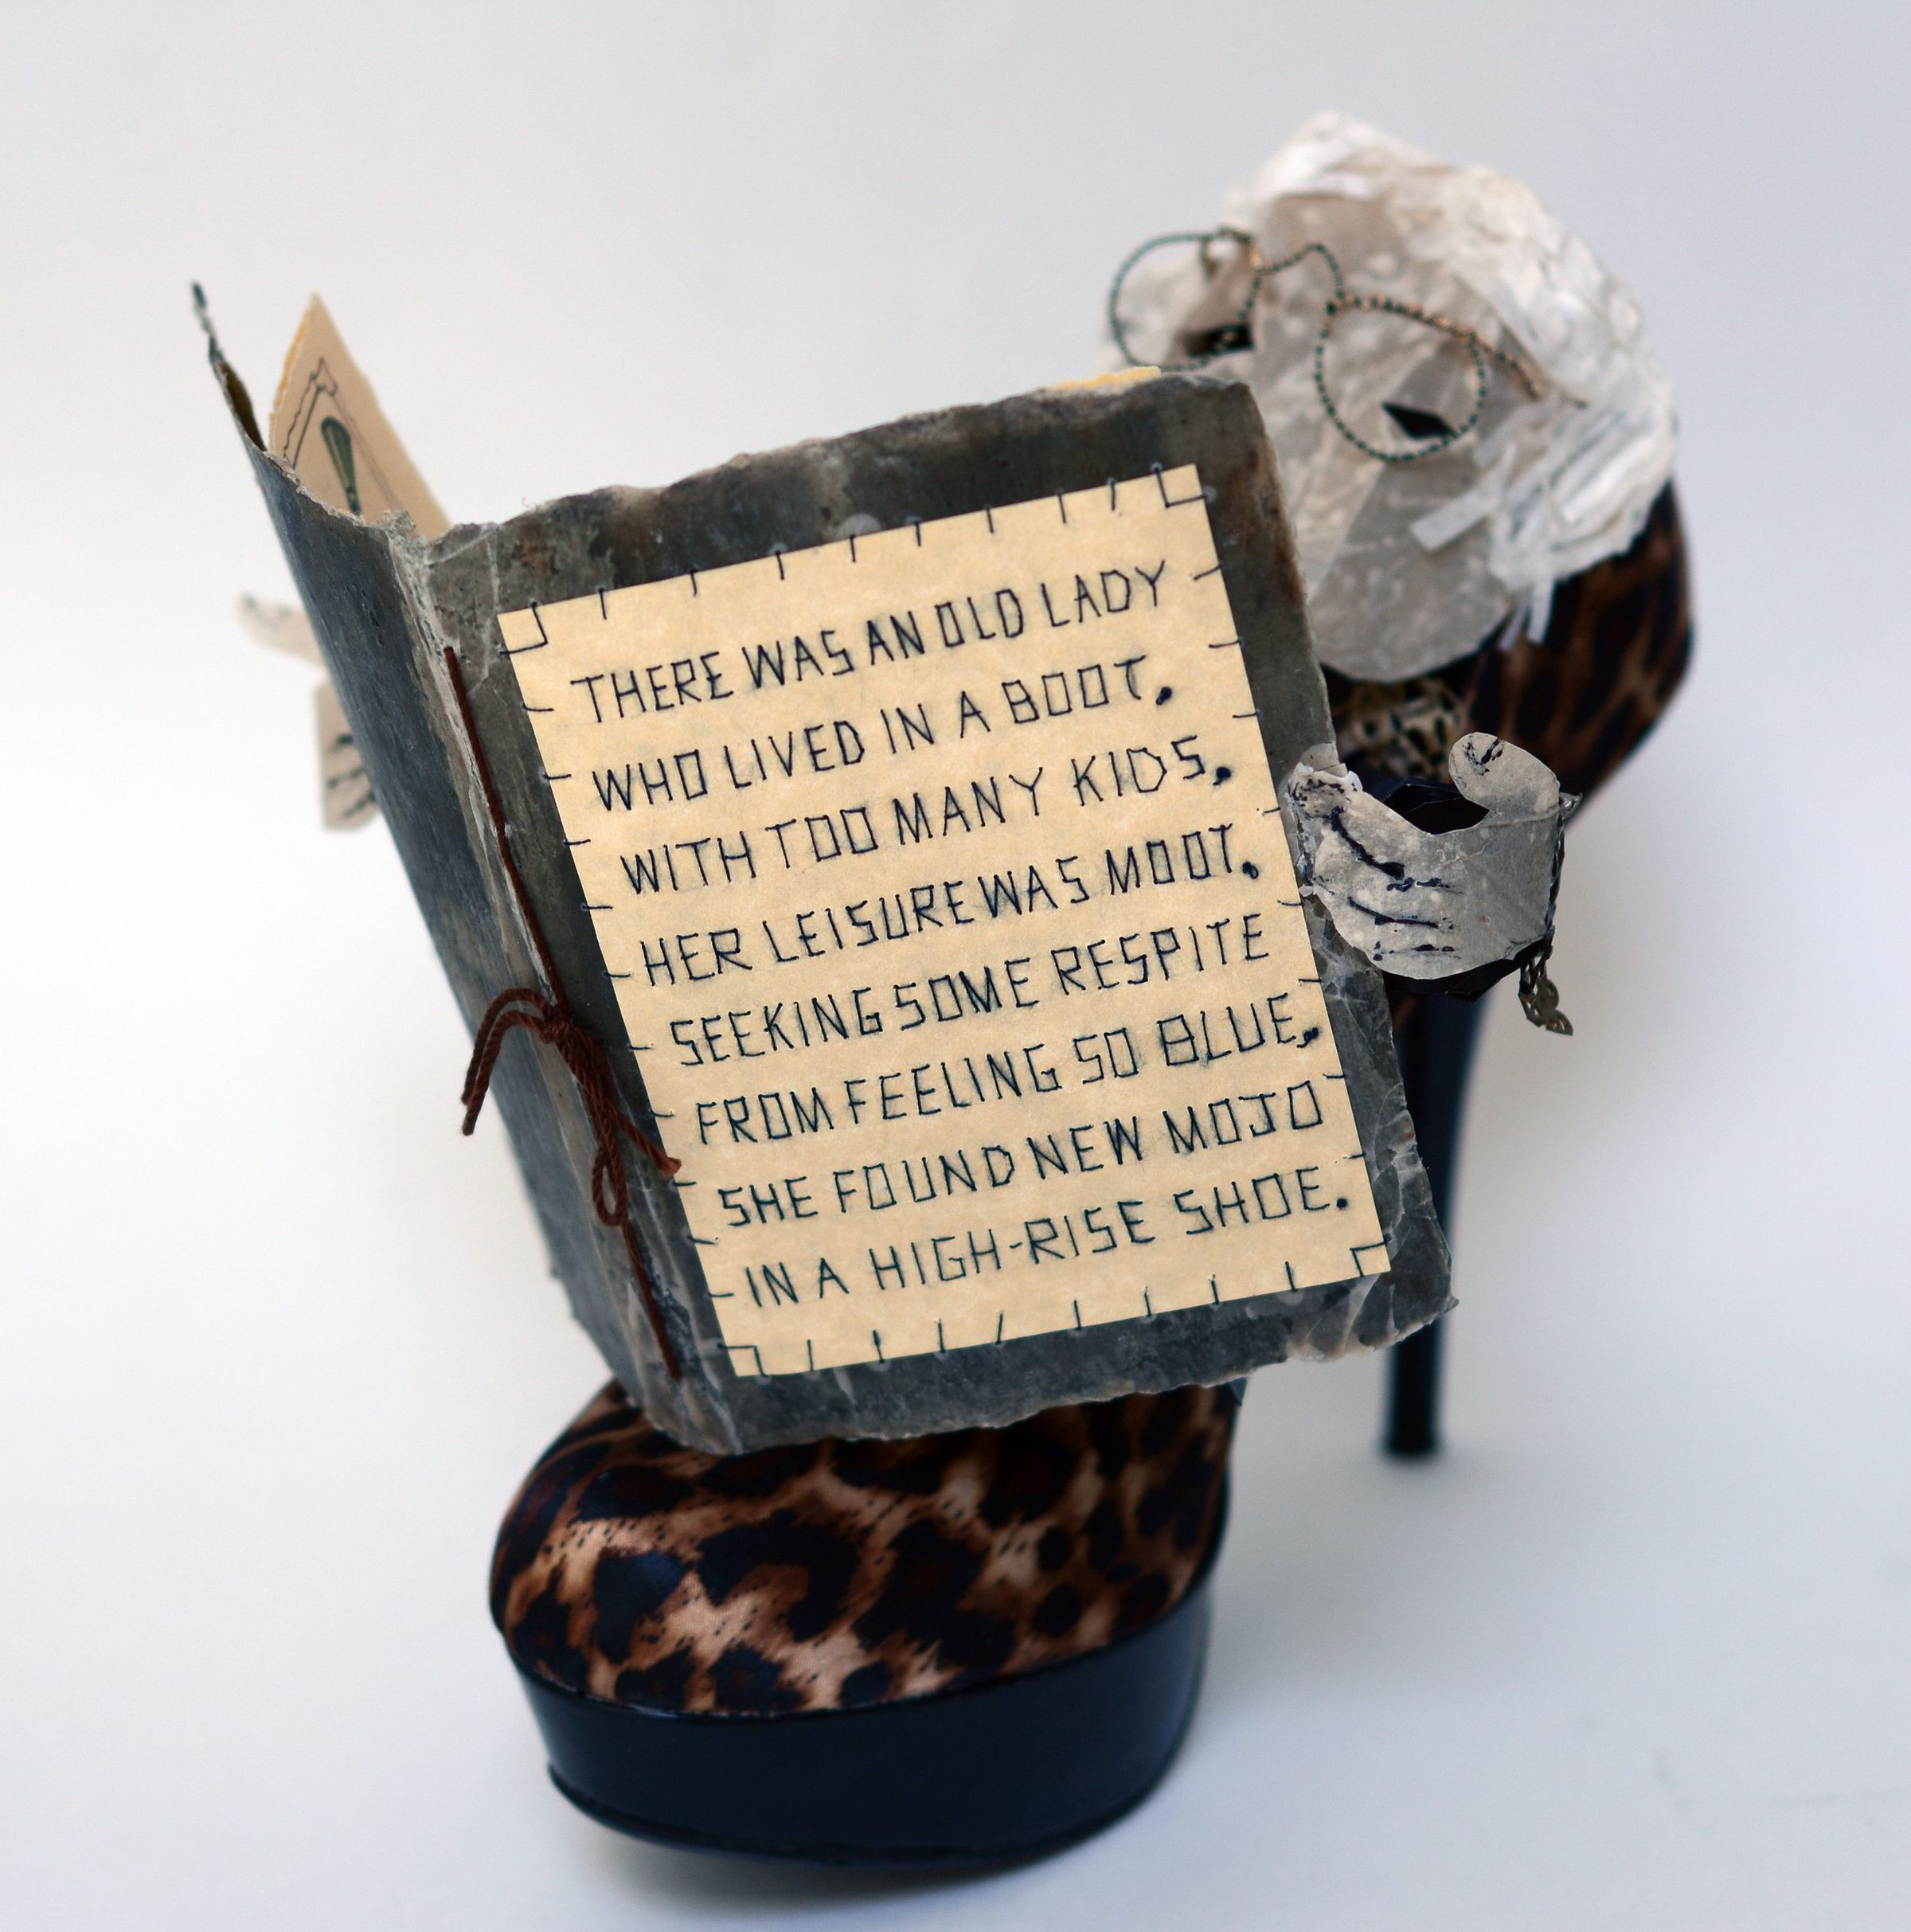 THERE WAS AN OLD LADY
WHO LIVED IN A BOOT.
WITH TOO MANY KIDS,
HER LEISURE WAS MOOT.
SEEKING SOME RESPITE
FROM FEELING SO BLUE,
SHE FOUND NEW MOJO
IN A HIGH-RISE SHOE.